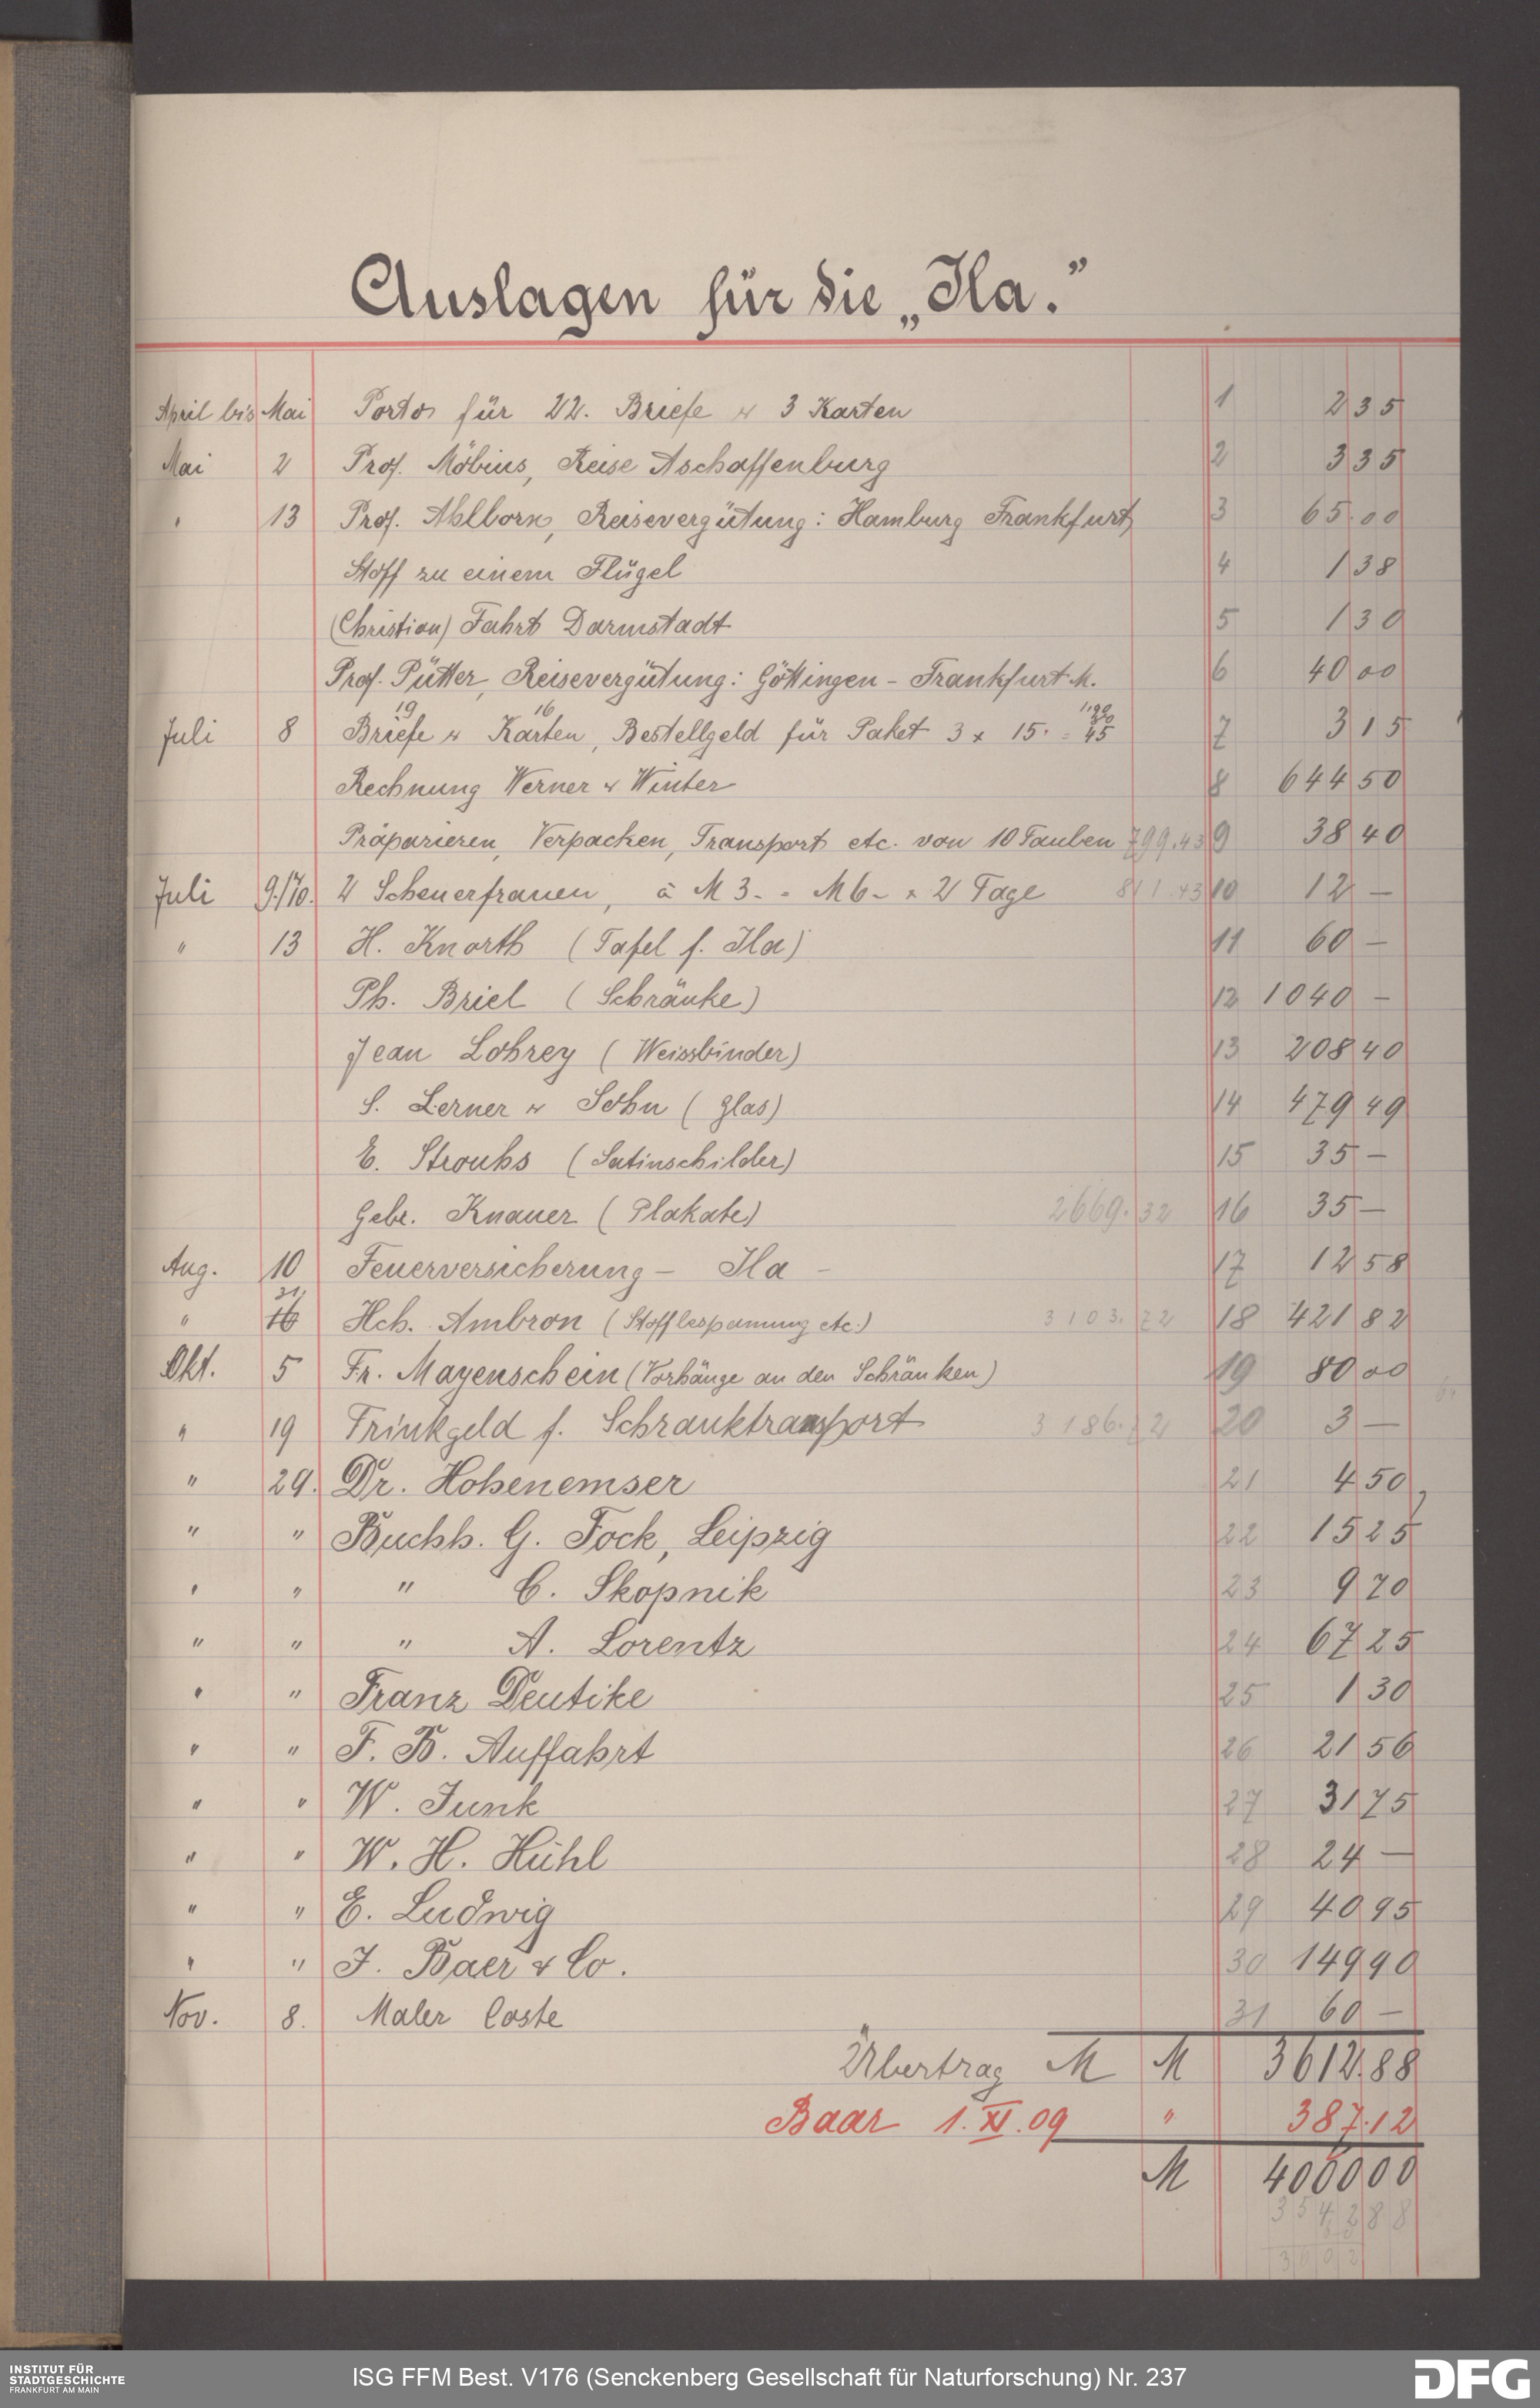 Auslagen für die „Ila."
April bis Mai Porto für 22. Briefe & 3 Karten 1 2 35
Mai 2 Prof. Möbius, Reise Aschaffenburg 2 3 35
" 13 Prof. Ahlborn, Reisevergütung: Hamburg Frankfurt 3 65.00
Stoff zu einem Flügel 4 1 38
(Christian) Fahrt Darmstadt 5 1 30
Prof. Pütter, Reisevergütung: Göttingen - Frankfurt M. 6 40 00
19 16
Juli 8 Briefe & Karten, Bestellgeld für Paket 3 x 15. = 45 7 3 15
Rechnung Werner & Winter 8 644 50
Präparieren, Verpacken, Transport etc. von 10 Tauben 799.43 9 38 40
Juli 9./10. 2 Scheuerfrauen, à M 3.- = M 6- x 2 Tage 811.43 10 12 -
" 13 H. Knorth (Tafel f. Ila) 11 60 -
Ph. Briel (Schränke) 12 1040 -
Jean Lohrey (Weissbinder) 13 208 40
S. Lerner & Sohn (Glas) 14 479 49
E. Strouhs (Satinschilder) 15 35 -
Gebr. Knauer (Plakate) 2669.32 16 35 -
Aug. 10 Feuerversicherung - Ila - 17 12 58
31.
" 16 Hch. Ambron (Stoffbespannung etc.) 3103.72 18 421 82
Okt. 5 Fr. Mayenschein (Vorhänge an den Schränken) 19 80 00
" 19 Trinkgeld f. Schranktransport 3186.72 20 3 -
" 29. Dr. Hohenemser 21 4 50
" " Buchh. G. Fock, Leipzig 22 15 25
" " " C. Skopnik 23 9 70
" " " A. Lorentz 24 67 25
" " Franz Deutike 25 1 30
" " F. B. Auffahrt 26 21 56
" " W. Junk 27 31 75
" " W. H. Kühl 28 24 -
" " E. Ludwig 29 40 95
" " J. Baer & Co. 30 149 90
Nov. 8. Maler Coste 31 60 -
Übertrag M M 3612.88
Baar 1. XI. 09 " 387.12
M 4000 00
3542 88
INSTITUT FÜR
STADTGESCHICHTE
FRANKFURT AM MAIN
ISG FFM Best. V176 (Senckenberg Gesellschaft für Naturforschung) Nr. 237
DFG